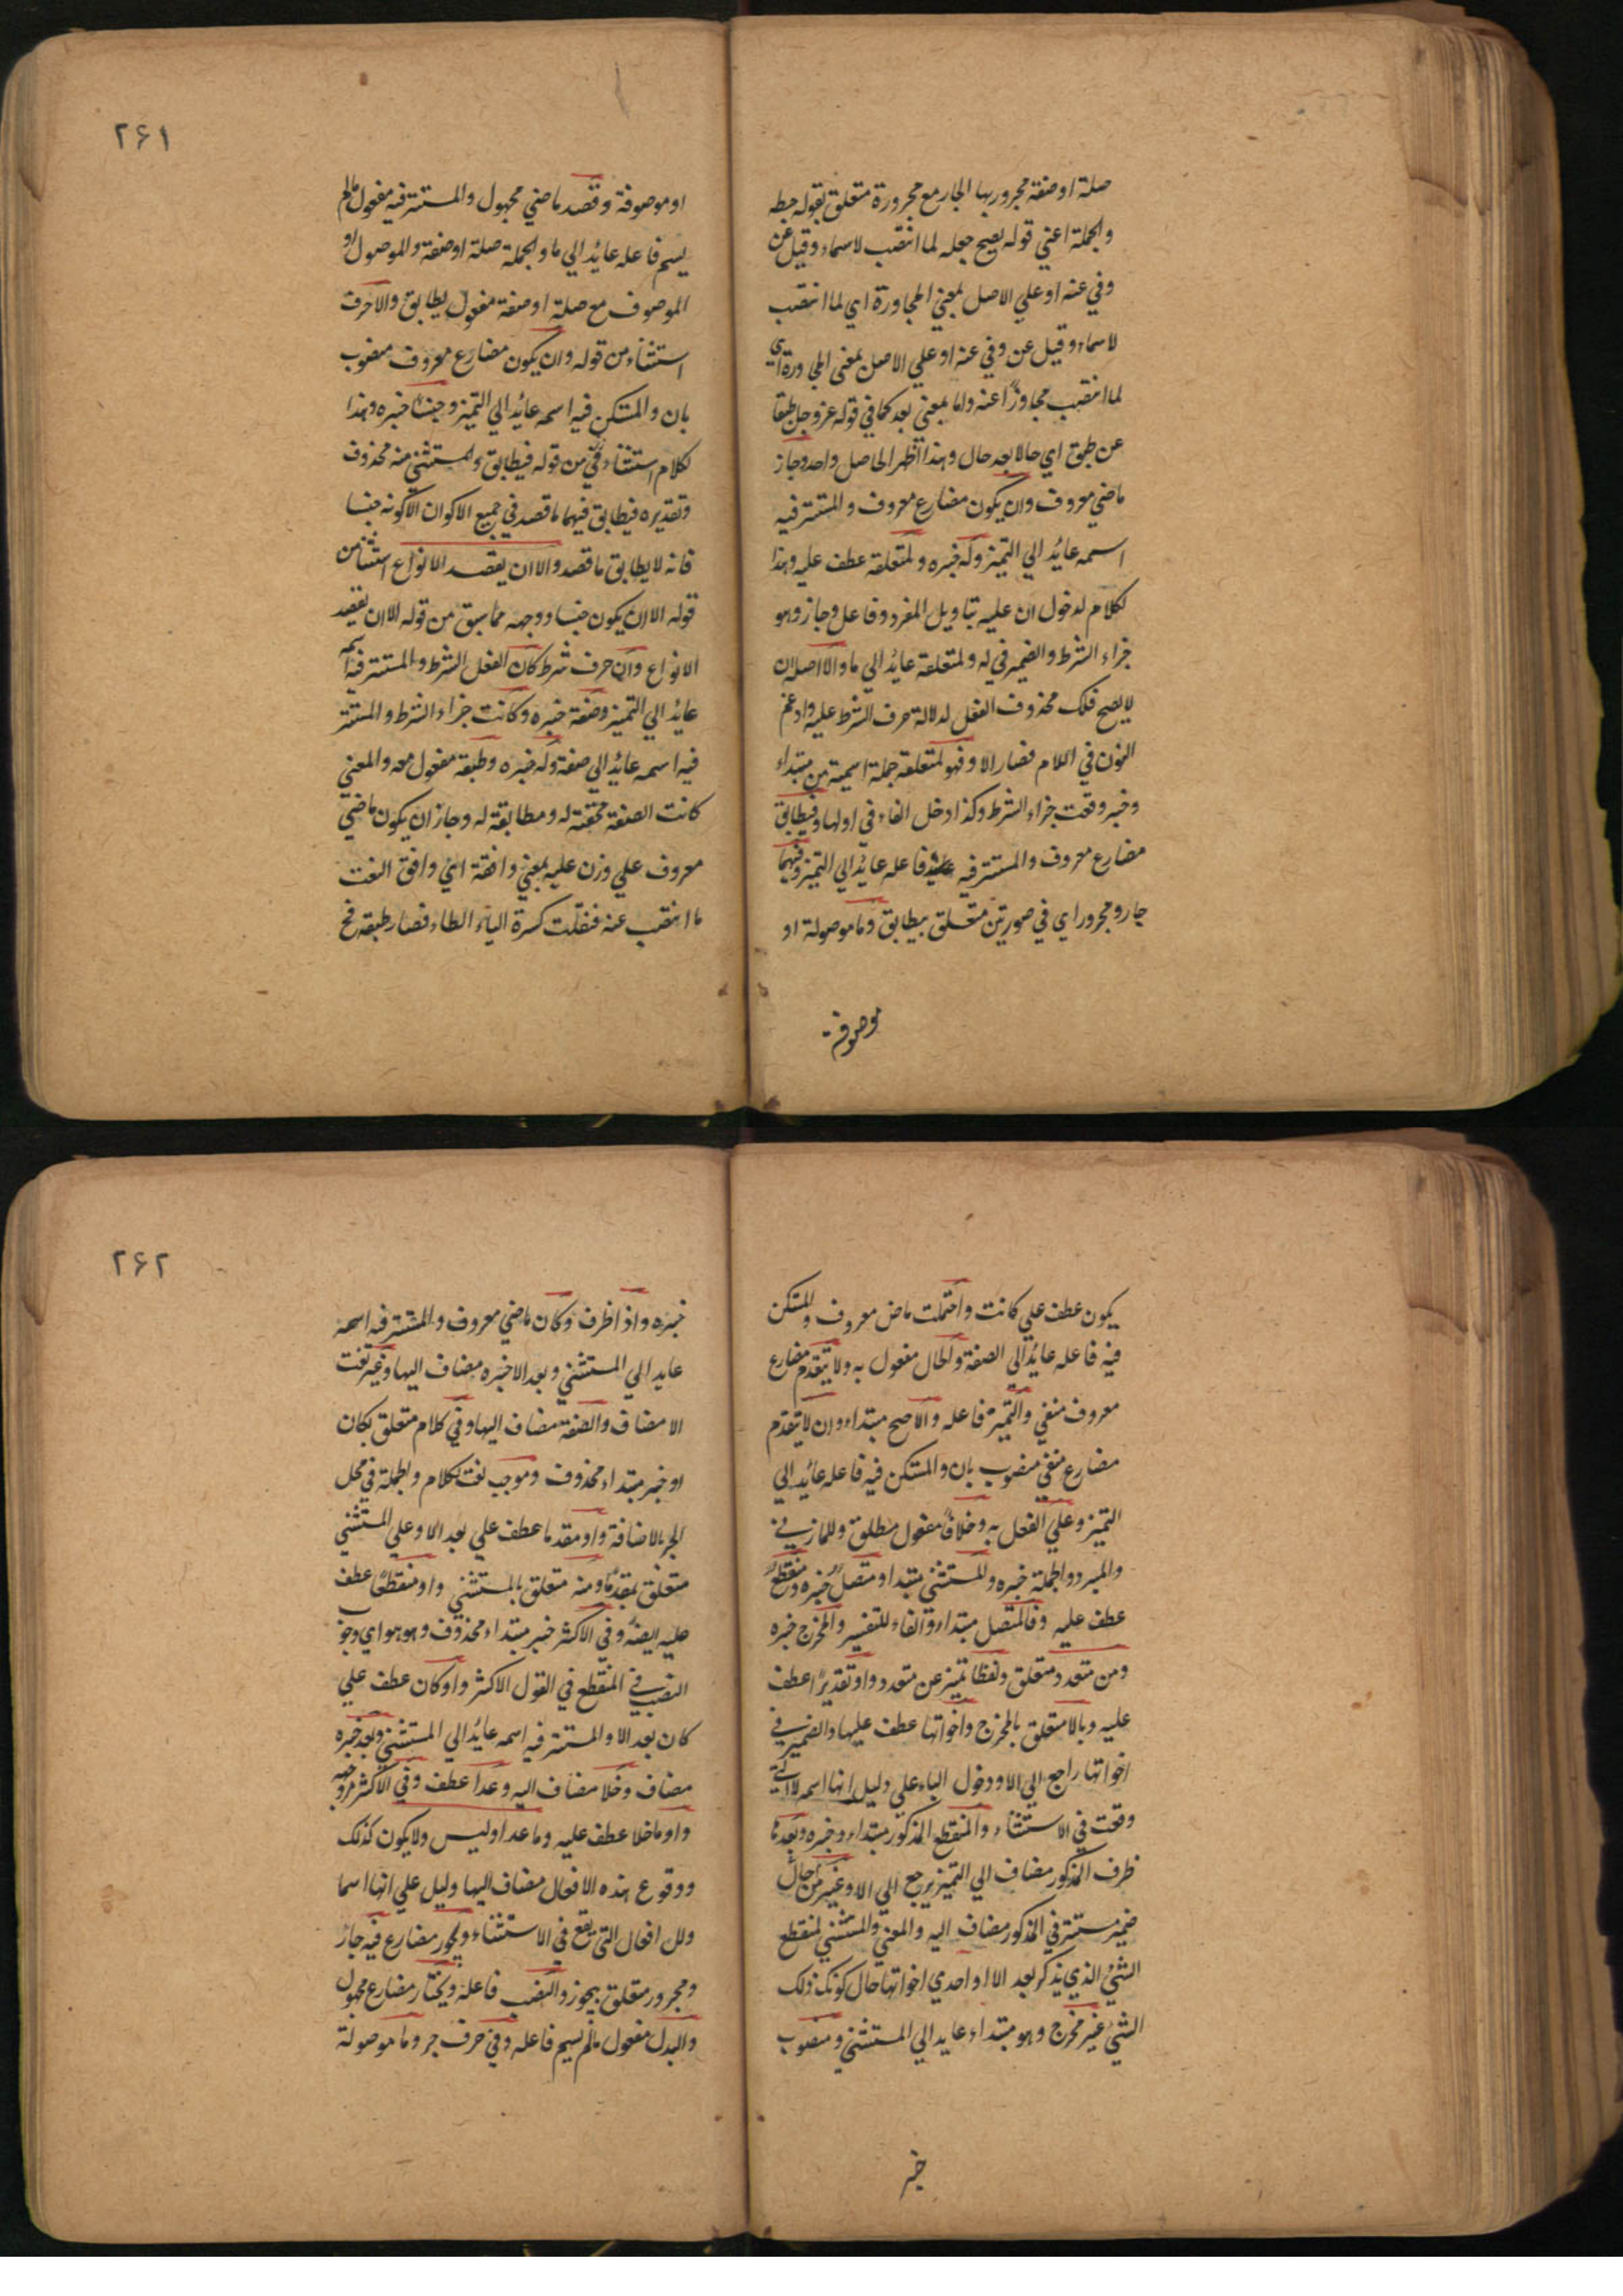 صلة او صفة مجرور بها الجار مع مجرورة متعلق بقوله
والجملة اعني قوله يصح جعله لما انتصب لاسماء وقيل عن
وفي عنه او علي الاصل بمعني المجاورة اي لما انتصب
لاسماء وقيل عن وفي عنه او علي الاصل بمعني المجاورة اي
لما انتصب مجاوزًا عنه واما بمعني بعد كما في قوله عز وجل طبقا
عن طبق اي حالا بعد حال وهذا اظهر الحاصل واحد وجاز
ماضي معروف وان يكون مضارع معروف والمستتر فيه
اسمه عائد الي التميز وله خبره ولمتعلقه عطف عليه وهذا
لكلام لدخول ان عليه بتاويل المفرد وفاعل وجاز وهو
جزاء الشرط والضمير في له ولمتعلقه عائد الي ما والا اصله ان
لا يصح فلك محذوف الفعل لدلالة حرف الشرط عليه وادغم
النون في اللام فصار الا وفهو لمتعلقه جملة اسمية من مبتداء
وخبر وقعت جزاء الشرط وكذا دخل الفاء في اولها وفيطابق
مضارع معروف والمستتر فيه فاعله عايد الي التميز وفيهما
جار ومجرور اي في صورتين متعلق بيطابق وما موصولة او
موصوفة
۲۶۱
او موصوفة وقصد ماضي مجهول والمستتر فيه مفعول مالم
يسم فاعله عائد الي ما والجملة صلة او صفة والموصول او
الموصوف مع صلة او صفة مفعول يطابق والا حرف
استثناء من قوله وان يكون مضارع معروف منصوب
بان والمستكن فيه اسمه عائد الي التميز وجنسًا خبره وهذا
لكلام استثناء من قوله فيطابق والمستثني منه محذوف
وتقديره فيطابق فيهما ما قصد في جميع الاكوان الا كونه جنسا
فانه لا يطابق ما قصد والا ان يقصد الانواع استثنا من
قوله الا ان يكون جنسا ووجهه مما سبق من قوله الا ان يقصد
الانواع وان حرف شرط كان الفعل الشرط والمستتر فيه اسمه
عايد الي التميز وصفة خبره وكانت جزاء الشرط والمستتر
فيه اسمه عايد الي صفة وله خبره وطبقه مفعول معه والمعني
كانت الصفة مختصة له ومطابقة له وجاز ان يكون ماضي
معروف علي وزن عليه بمعني وافقه اي وافق النعت
ما انتصب عنه فنقلت كسرة الباء الطاء فصار طبقه فح
يكون عطف علي كانت واحتملت ماض معروف والمستكن
فيه فاعله عائد الي الصفة والحال مفعول به ولا يتقدم مضارع
معروف منفي والتميز فاعله والاصح مبتداء وان لا يتقدم
مضارع منفي منصوب بان والمستكن فيه فاعله عائد الي
التميز وعلي الفعل به وخلافًا مفعول مطلق وللمازني
والمبرد والجملة خبره والمستثني مبتدا ومتصل خبره ومنقطع
عطف عليه وفالمتصل مبتداء والفاء للتفسير والمخرج خبره
ومن متعدد متعلق ولفظا تميز عن متعدد واو تقديرًا عطف
عليه وبالا متعلق بالمخرج واخواتها عطف عليها والضمير في
اخواتها راجع الي الا ودخول الباء علي دليل انها اسم
وقعت في الاستثناء والمنقطع المذكور مبتداء وخبره وبعدها
ظرف المذكور مضاف الي التميز يرجع الي الا وغير مخرج حال
ضمير مستتر في المذكور مضاف اليه والمعني والمستثني المنقطع
الشي الذي يذكر بعد الا او احدي اخواتها حال كون ذلك
الشي غير مخرج وهو مبتداء عايد الي المستثني ومنصوب
خبر
۲۶۲
خبره واذا ظرف وكان ماضي معروف والمستتر فيه اسمه
عايد الي المستثني وبعد الا خبره مضاف اليها وغير نعت
الا مضاف والصفة مضاف اليها وفي كلام متعلق بكان
او خبر مبتداء محذوف وموجب نعت لكلام والجملة في محل
الجر بالاضافة واو مقدما عطف علي بعد الا وعلي المستثني
متعلق بمقدمًا ومنه متعلق بالمستثني واو منقطعًا عطف
عليه ايضًا وفي الاكثر خبر مبتداء محذوف وهو هو اي وجوب
النصب في المنقطع في القول الاكثر واو كان عطف علي
كان بعد الا والمستتر فيه اسمه عائد الي المستثني وبعد خبره
مضاف وخلا مضاف اليه وعدا عطف وفي الاكثر
واو ما خلا عطف عليه وما عدا وليس ولا يكون كذلك
ووقوع هذه الافعال مضاف اليها دليل علي انها اسما
افعال التي يقع في الاستثناء ويجوز مضارع فيه جار
ومجرور متعلق بيجوز والنصب فاعله ويختار مضارع مجهول
والبدل مفعول مالم يسم فاعله وفي حرف جر وما موصولة